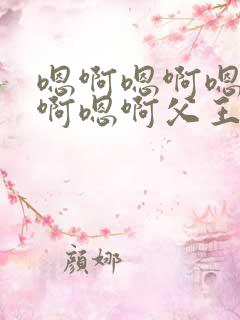 嗯啊嗯啊嗯
啊嗯啊父王
顔娜